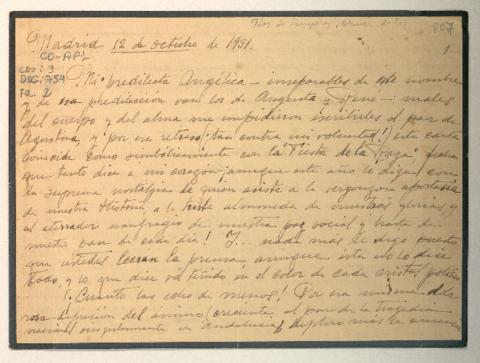 807
1
Madrid 12 de octubre de 1931.
CO-AP1
CJ: 3
DOC. 754
FO. 2
Mi predilecta Angélica - inseparables de este nombre
y de esa predilección van los de Augusto y Rene - males
del cuerpo y del alma me impidieron escribirles al par de
Agustina, y por ese retraso ¡tan contra mi voluntad! esta carta
coincide como simbólicamente con la "Fiesta de la Raza", fecha
que tanto dice a mi corazon, aunque este año lo diga con
la suprema nostalgia de quien asiste a la vergonzosa apostasía
de nuestra Historia, a la triste almoneda de nuestras glorias, y
al aterrador naufragio de nuestra paz social y hasta de
nuestro pan de cada día! Y... nada mas le digo puesto
que ustedes leeran la prensa aunque esta no lo dice
todo, y lo que dice vá teñido en el color de cada cristal político
¡Cuánto las echo de menos! Por esa misma
depresión del animo (creciente al par de la tragedia
nacional singularmente en Andalucia), deploro más la ausencia